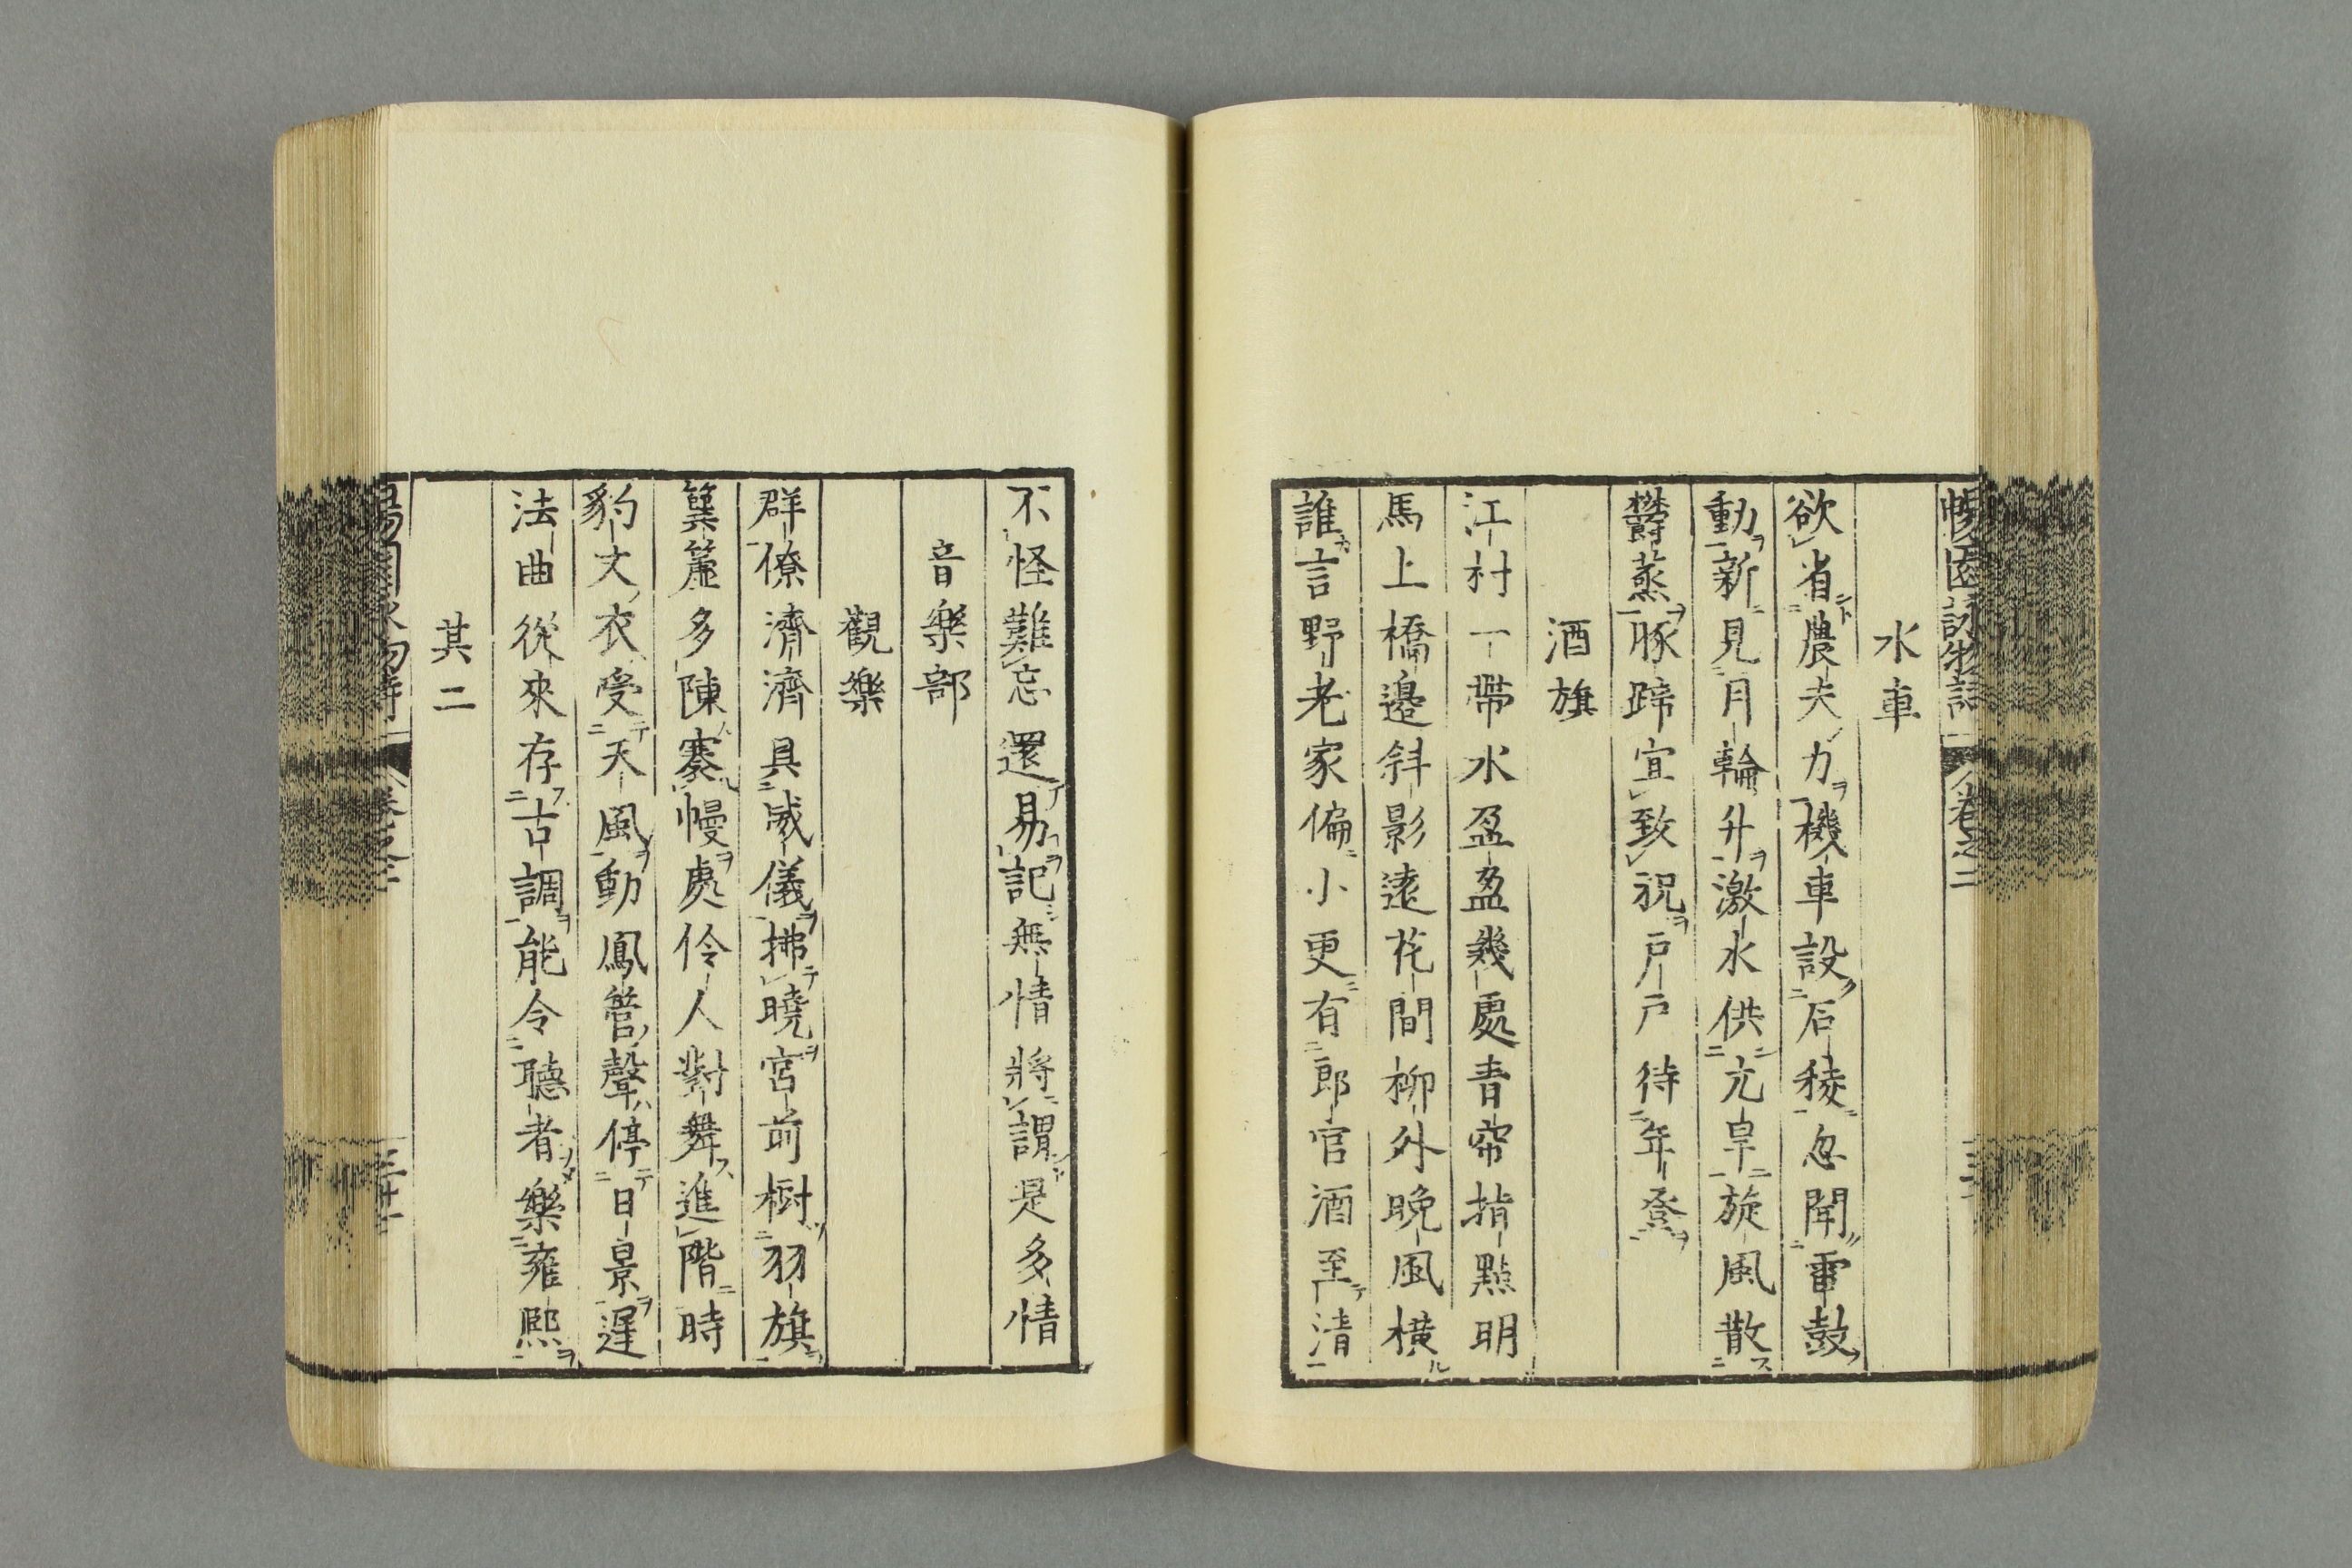 暢園詠物詩 卷之二
水車
欲省農夫力機車設石稜忽聞雷鼓
動新見月輪升激水供亢旱旋風散
欝蒸豚蹄宜致祝戸戸待年登
酒旗
江村一帶水盈盈幾處青帘指點明
馬上橋邊斜影遠花間柳外晚風橫
誰言野老家偏小更有郎官酒至清
不怪難忘還易記無情將謂是多情
音樂部
觀樂
群僚濟濟具威儀拂曉宮前樹羽旗
簨簴多陳褰幔處伶人對舞進階時
豹文衣受天風動鳳管聲停日景遲
法曲從來存古調能令聽者樂雍熙
其二